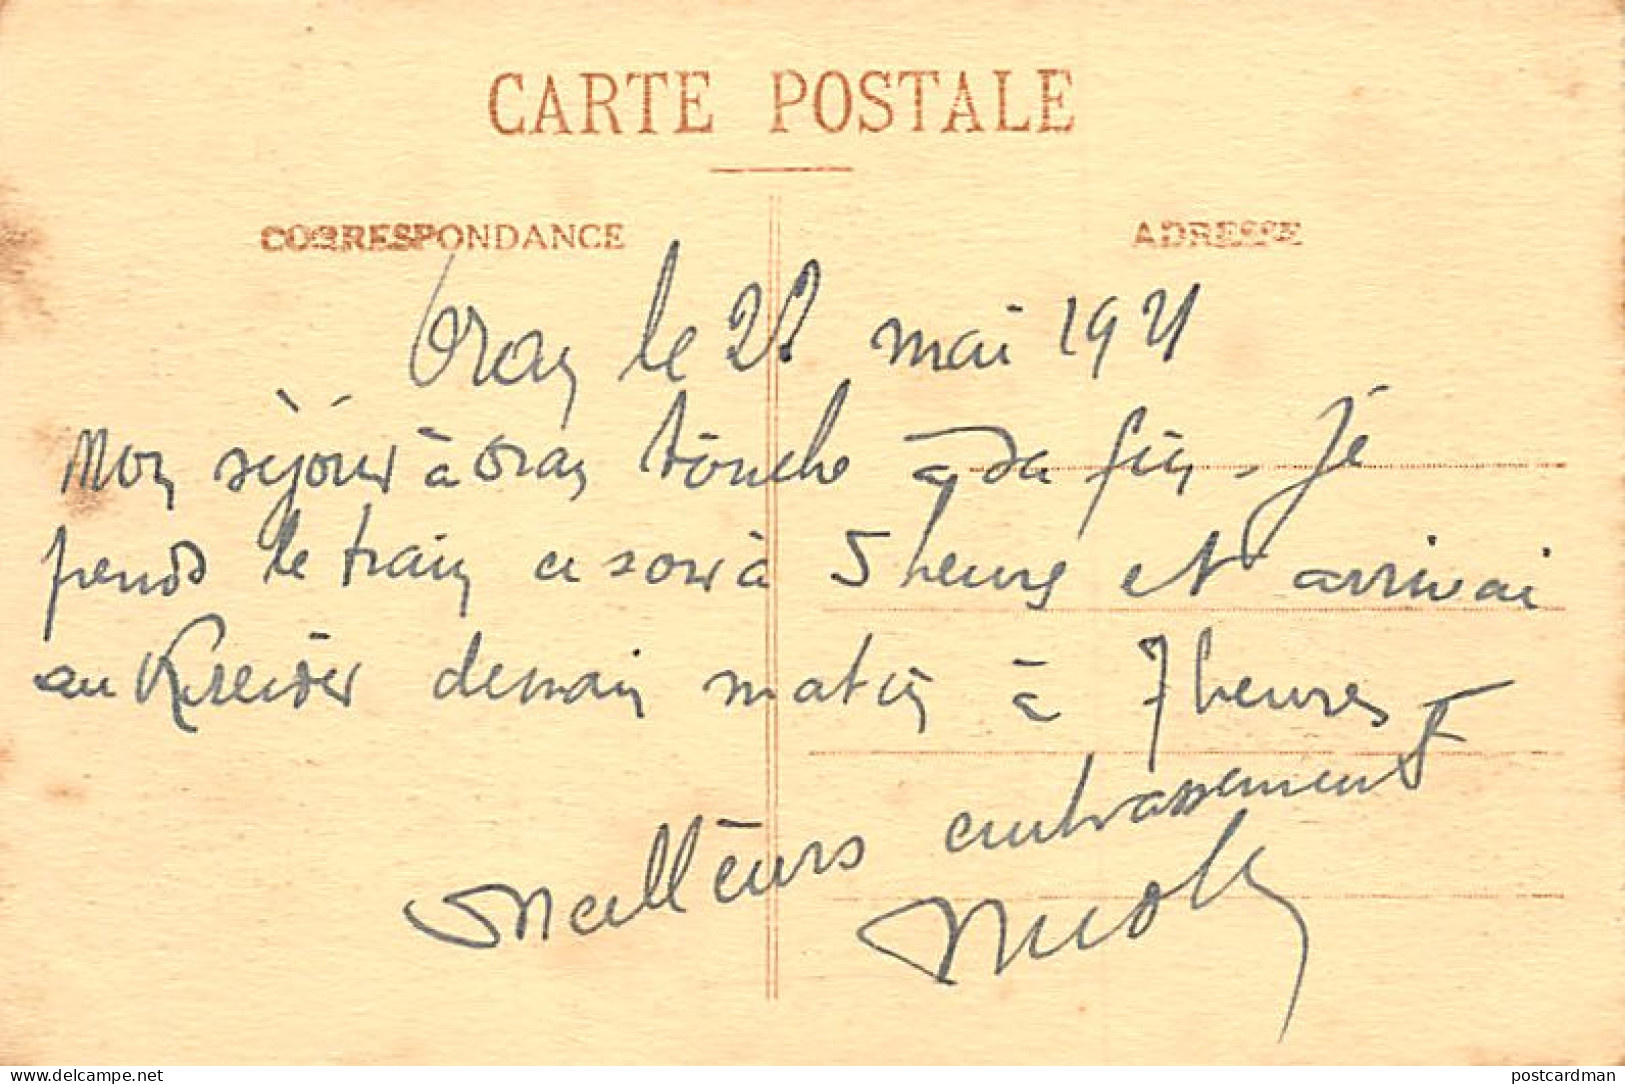 CARTE POSTALE
CORRESPONDANCE
ADRESSE
Oran le 28 mai 1921
Mon séjour à Oran touche à sa fin. Je
prends le train ce soir à 5 heures et arrivai
au Kreider demain matin à 7 heures
Meilleurs embrassements
www.delcampe.net
postcardman